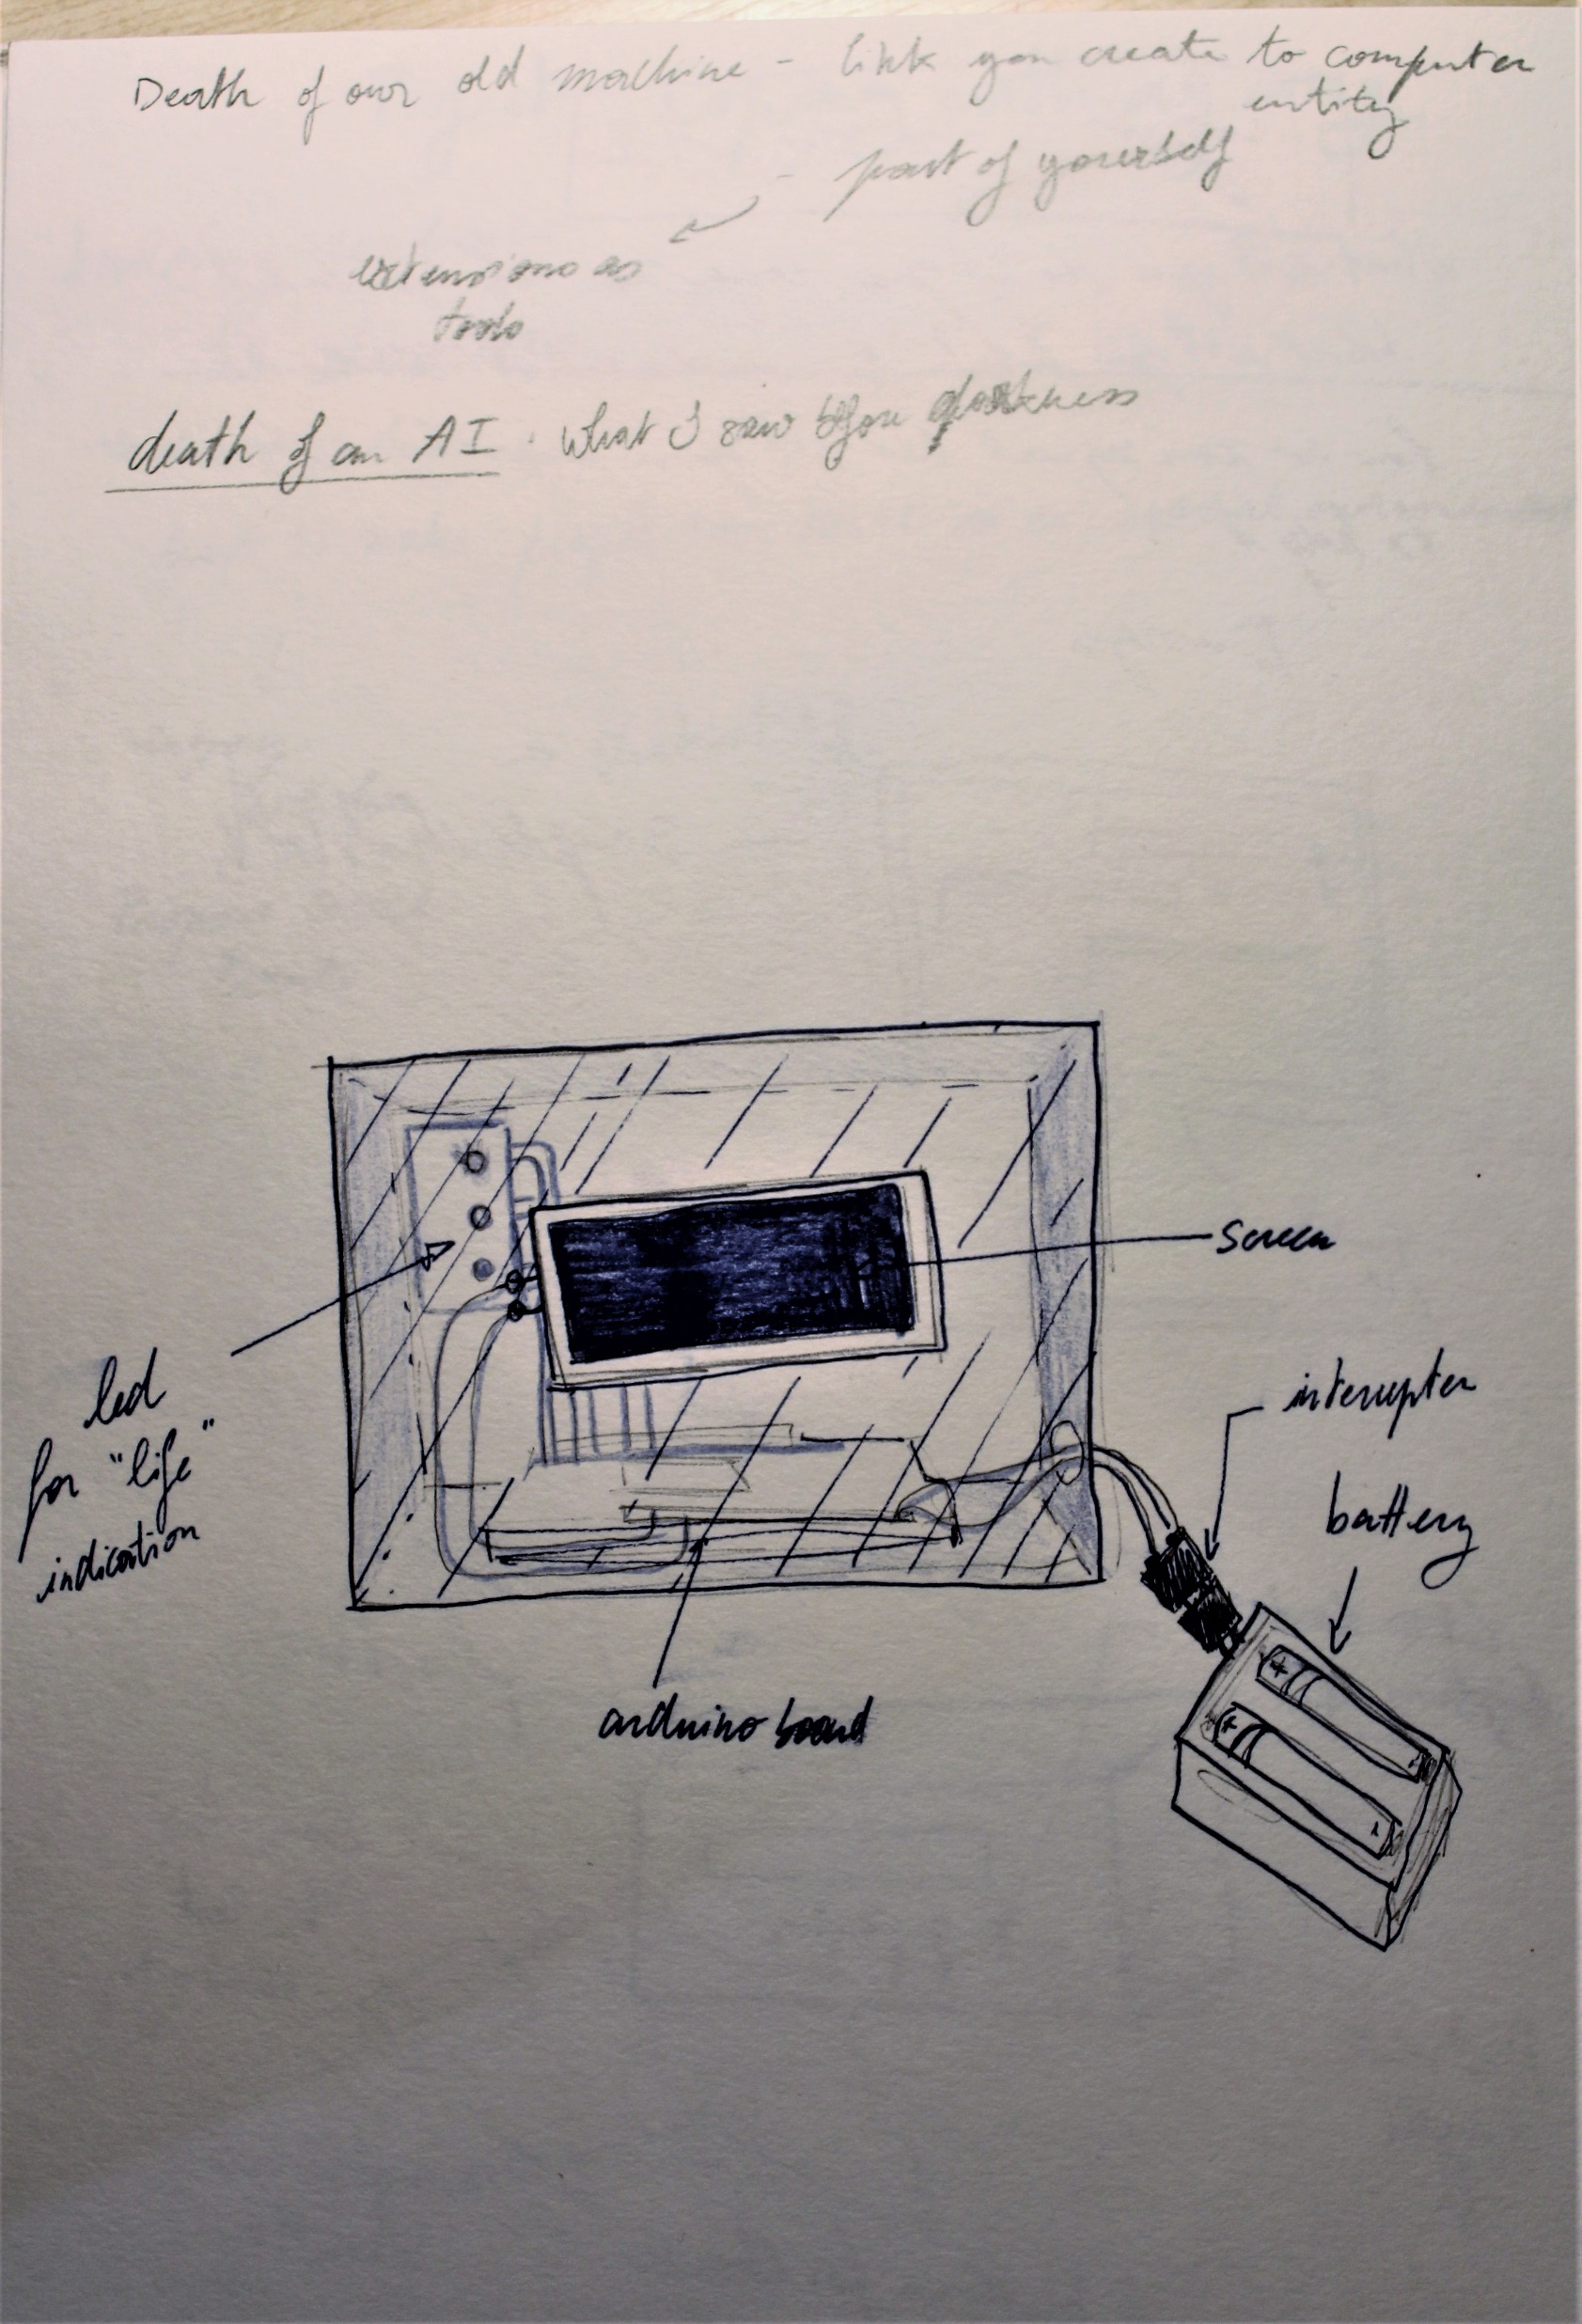 Death of our old machine - link you create to computer
entity
- part of yourself
extensions as
tools
death of an AI . What I saw before darkness
screen
interupter
led
for "life"
indication
battery
+
+
-
arduino board